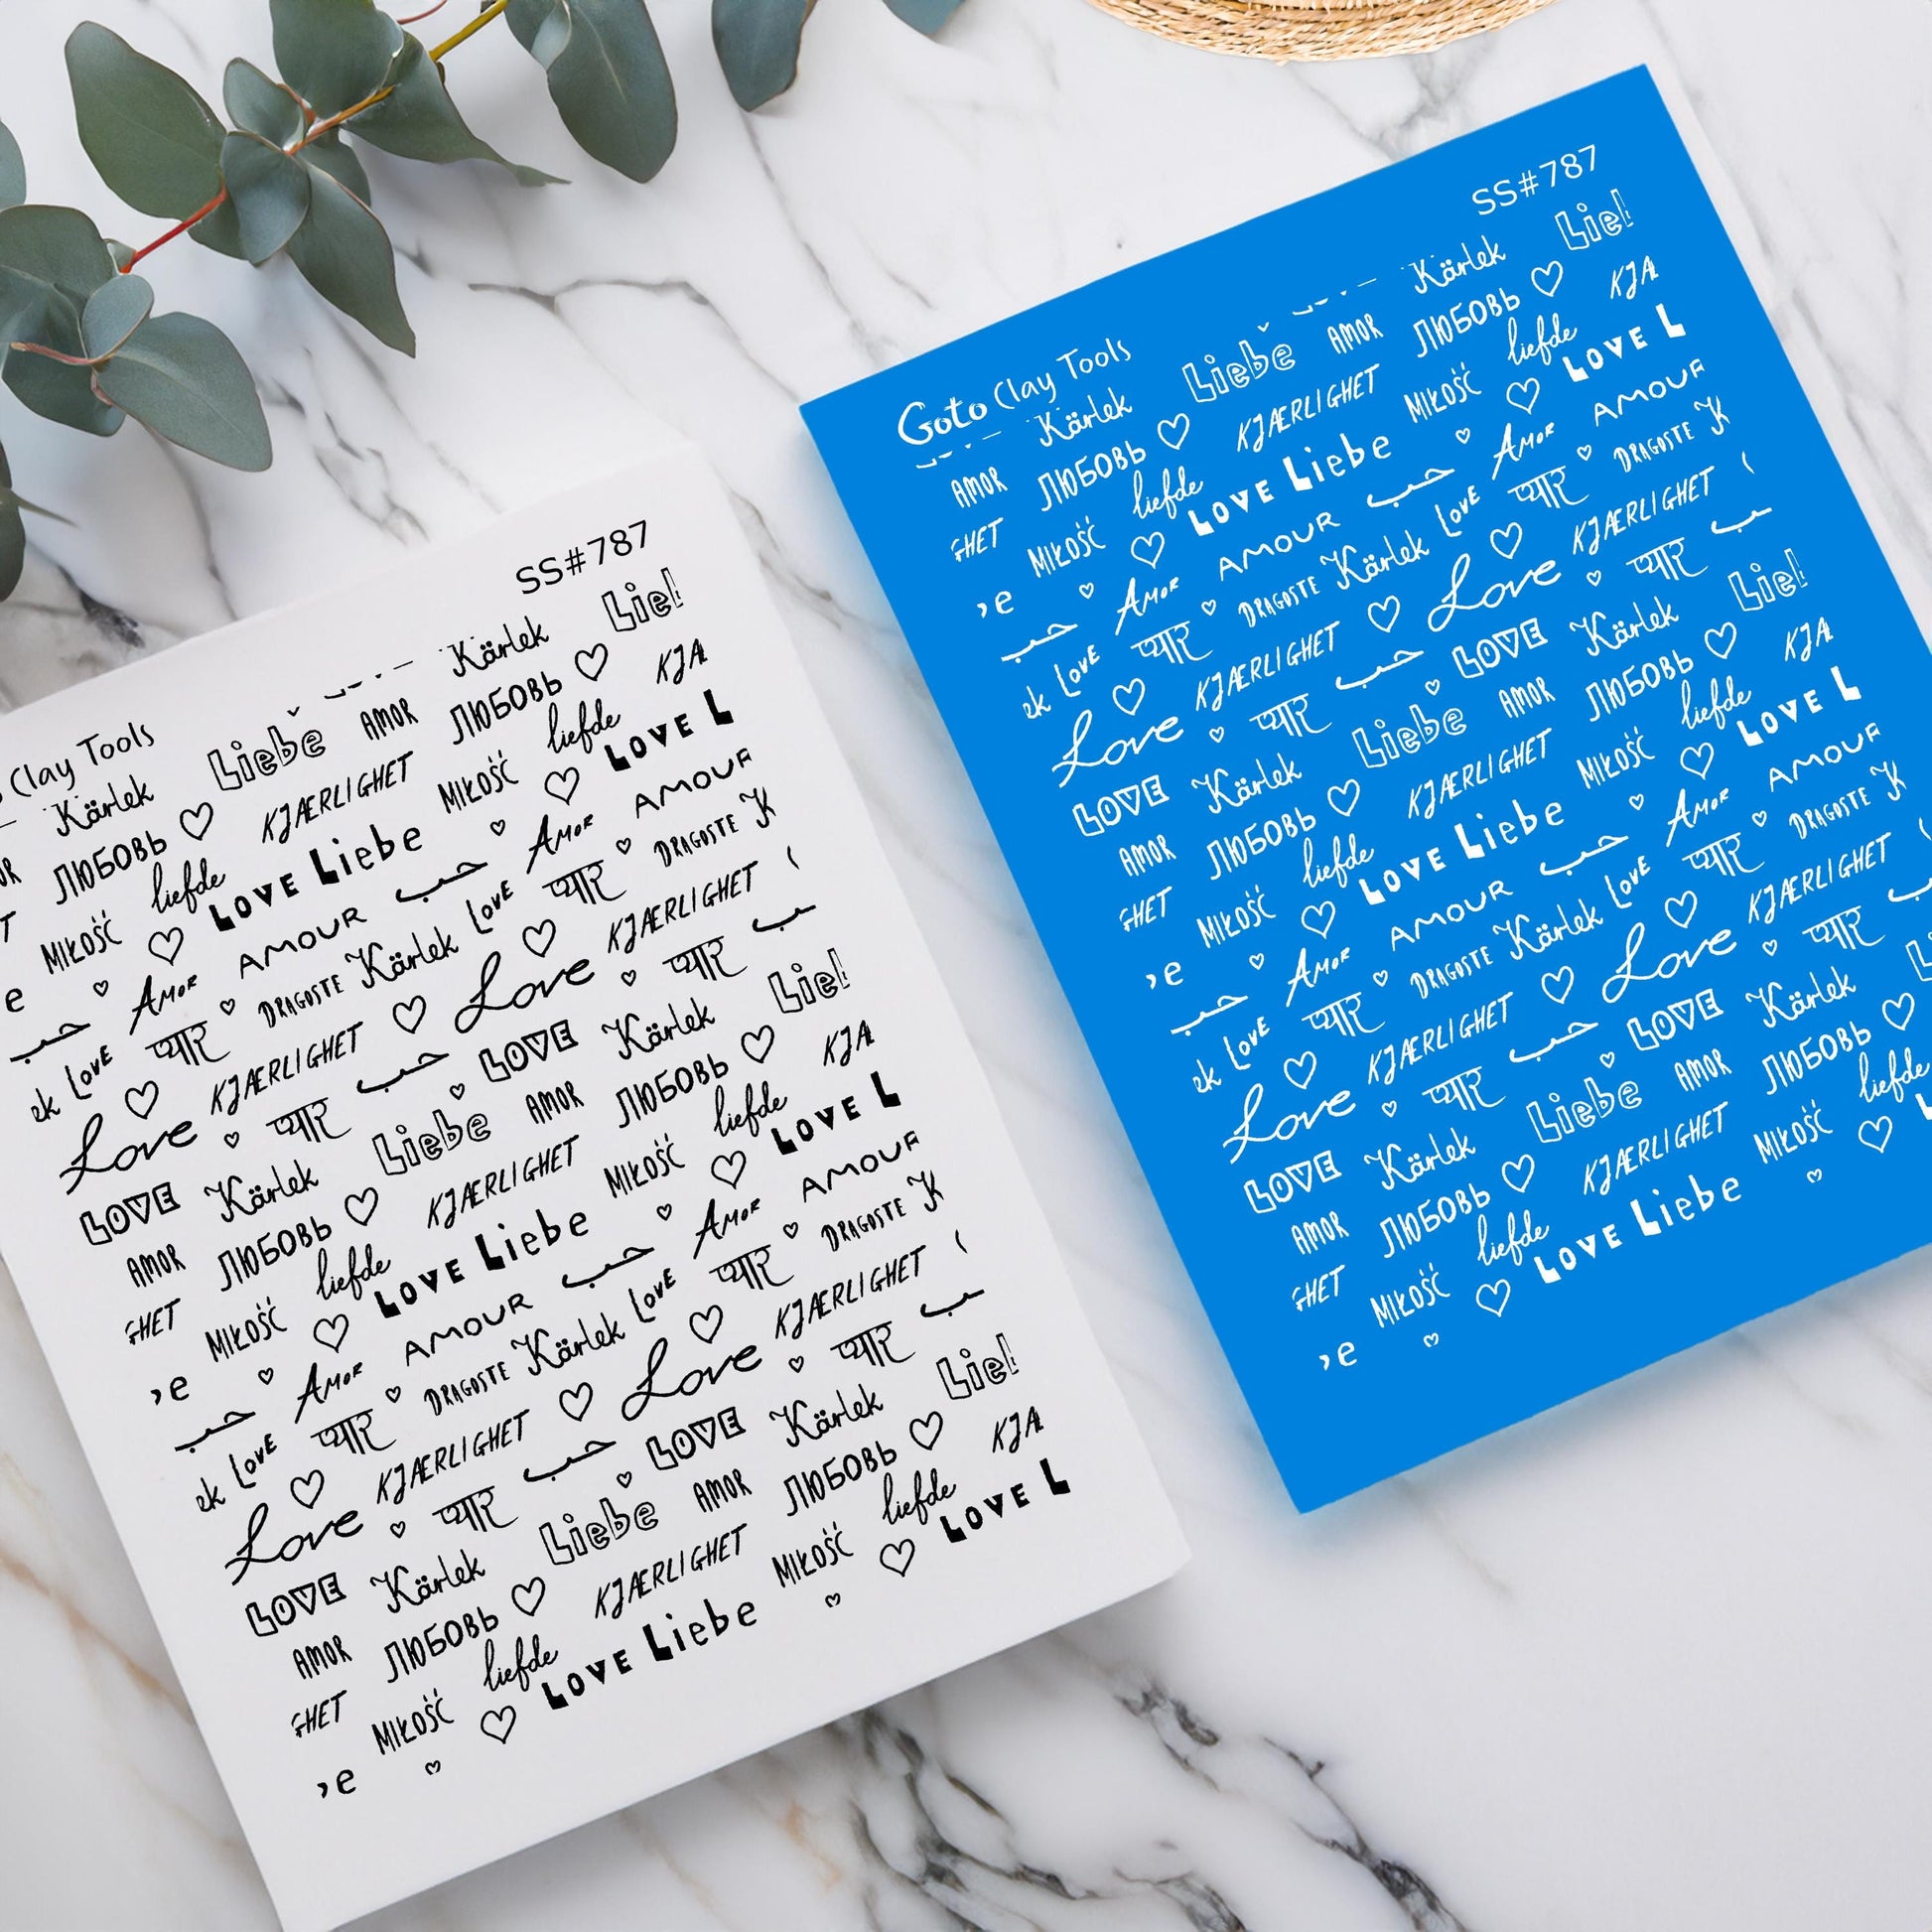 SS#787
Clay Tools
Kärlek Liebe Kärlek
AMOR ЛЮБОВЬ ♡ Liebe AMOR ЛЮБОВЬ ♡
liefde KJÆRLIGHET MIŁOŚĆ liefde KJA
MIŁOŚĆ ♡ LOVE Liebe ♡ LOVE L
AMOR AMOUR حب AMOR AMOUR
حب प्यार ♡ DRAGOSTE Kärlek LOVE प्यार ♡ DRAGOSTE K
LOVE ♡ KJÆRLIGHET ♡ Love ♡ KJÆRLIGHET
Love ♡ प्यार حب LOVE ♡ प्यार
LOVE Kärlek Liebe ♡ Kärlek
AMOR ЛЮБОВЬ ♡ Liebe AMOR ЛЮБОВЬ ♡
GHET liefde KJÆRLIGHET MIŁOŚĆ liefde KJA
MIŁOŚĆ ♡ LOVE Liebe ♡ LOVE L
AMOR AMOUR حب AMOR AMOUR
حب प्यार ♡ DRAGOSTE Kärlek LOVE प्यार ♡ DRAGOSTE K
LOVE ♡ KJÆRLIGHET ♡ Love ♡ KJÆRLIGHET
Love ♡ प्यार حب LOVE ♡ प्यार
LOVE Kärlek Liebe ♡ Kärlek
AMOR ЛЮБОВЬ ♡ AMOR ЛЮБОВЬ ♡
GHET liefde KJÆRLIGHET MIŁOŚĆ liefde KJA
MIŁOŚĆ ♡ LOVE Liebe ♡ LOVE L
SS#787
Goto Clay Tools
Kärlek Liebe Kärlek
AMOR ЛЮБОВЬ ♡ AMOR ЛЮБОВЬ ♡
GHET liefde KJÆRLIGHET MIŁOŚĆ liefde KJA
MIŁOŚĆ ♡ LOVE Liebe ♡ LOVE L
AMOR AMOUR حب AMOR AMOUR
حب प्यार ♡ DRAGOSTE Kärlek LOVE प्यार ♡ DRAGOSTE K
LOVE ♡ KJÆRLIGHET ♡ Love ♡ KJÆRLIGHET
Love ♡ प्यार حب LOVE ♡ प्यार
LOVE Kärlek Liebe ♡ Kärlek
AMOR ЛЮБОВЬ ♡ AMOR ЛЮБОВЬ ♡
GHET liefde KJÆRLIGHET MIŁOŚĆ liefde KJA
MIŁOŚĆ ♡ LOVE Liebe ♡ LOVE L
AMOR AMOUR حب AMOR AMOUR
حب प्यार ♡ DRAGOSTE Kärlek LOVE प्यार ♡ DRAGOSTE K
LOVE ♡ KJÆRLIGHET ♡ Love ♡ KJÆRLIGHET
Love ♡ प्यार حب LOVE ♡ प्यार
LOVE Kärlek Liebe ♡ Kärlek
AMOR ЛЮБОВЬ ♡ AMOR ЛЮБОВЬ ♡
GHET liefde KJÆRLIGHET MIŁOŚĆ liefde
MIŁOŚĆ ♡ LOVE Liebe ♡